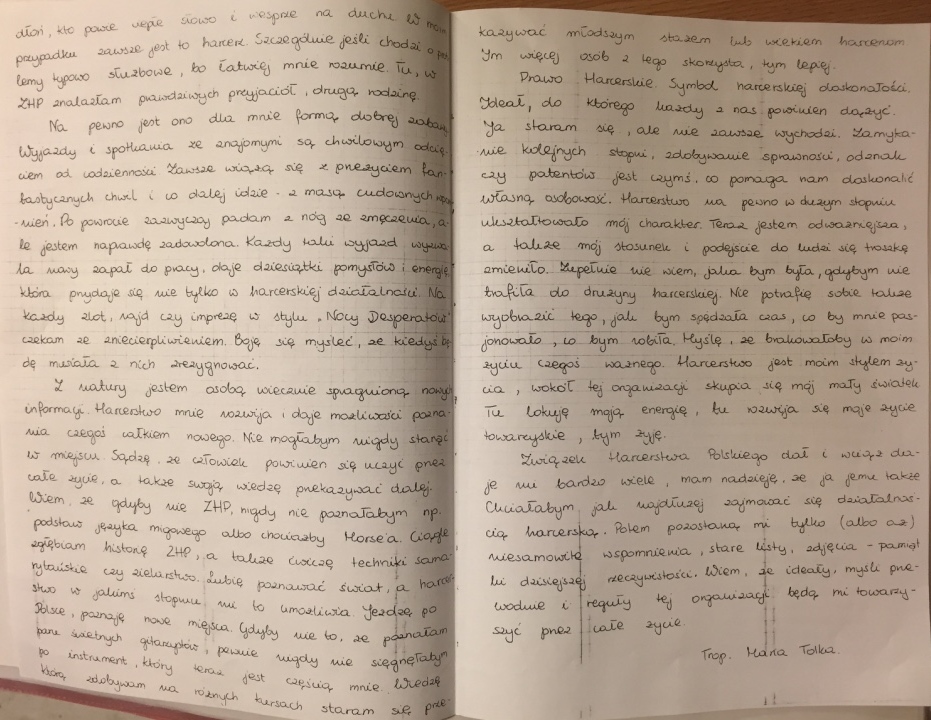 dłoń, kto powie ciepłe słowo i wesprze na duchu. W moim
przypadku zawsze jest to harcerz. Szczególnie jeśli chodzi o prob
lemy typowo służbowe, bo łatwiej mnie rozumie. Tu, w
ZHP znalazłam prawdziwych przyjaciół, drugą rodzinę.
Na pewno jest ono dla mnie formą dobrej zabawy
Wyjazdy i spotkania ze znajomymi są chwilowym odcię
ciem od codzienności. Zawsze wiążą się z przeżyciem fan-
tastycznych chwil i co dalej idzie - z masą cudownych
-mień. Po powrocie zazwyczaj padam z nóg ze zmęczenia, a-
le jestem naprawdę zadowolona. Każdy taki wyjazd wyzwa-
la nowy zapał do pracy, daje dziesiątki pomysłów i energię,
która przydaje się nie tylko w harcerskiej działalności. Na
każdy zlot, rajd czy imprezę w stylu „Nocy Desperatów"
czekam ze zniecierpliwieniem. Boję się myśleć, że kiedyś bę
dę musiała z nich zrezygnować.
Z natury jestem osobą wiecznie spragnioną nowych
informacji. Harcerstwo mnie rozwija i daje możliwości pozna-
nia czegoś całkiem nowego. Nie mogłabym nigdy stanąć
w miejscu. Sądzę, że człowiek powinien się uczyć przez
całe życie, a także swoją wiedzę przekazywać dalej.
Wiem, że gdyby nie ZHP, nigdy nie poznałabym np.
podstaw języka migowego albo chociażby Morse'a. Ciągle
zgłębiam historię ZHP, a także ćwiczę techniki sama-
rytańskie czy zielarstwo. Lubię poznawać świat, a harcer-
stwo w jakimś stopniu mi to umożliwia. Jeżdżę po
Polsce, poznaję nowe miejsca. Gdyby nie to, że poznałam
parę świetnych gitarzystów, pewnie nigdy nie sięgnęłabym
po instrument, który teraz jest częścią mnie. Wiedzę
którą zdobywam na różnych kursach staram się prze-
kazywać młodszym stażem lub wiekiem harcerzom.
Im więcej osób z tego skorzysta, tym lepiej.
Prawo Harcerskie. Symbol harcerskiej doskonałości.
Ideał, do którego każdy z nas powinien dążyć.
Ja staram się, ale nie zawsze wychodzi. Zamyka-
-nie kolejnych stopni, zdobywanie sprawności, odznak
czy patentów jest czymś, co pomaga nam doskonalić
własną osobowość. Harcerstwo na pewno w dużym stopniu
ukształtowało mój charakter. Teraz jestem odważniejsza,
a także mój stosunek i podejście do ludzi się troszkę
zmieniło. Zupełnie nie wiem, jaka bym była, gdybym nie
trafiła do drużyny harcerskiej. Nie potrafię sobie także
wyobrazić tego, jak bym spędzała czas, co by mnie pas-
jonowało, co bym robiła. Myślę, że brakowałoby w moim
życiu czegoś ważnego. Harcerstwo jest moim stylem ży-
cia, wokół tej organizacji skupia się mój mały światek
Tu lokuję moją energię, tu rozwija się moje życie
towarzyskie, tym żyję.
Związek Harcerstwa Polskiego dał i wciąż da-
je mi bardzo wiele, mam nadzieję, że ja jemu także
Chciałabym jak najdłużej zajmować się działalnoś-
cią harcerską. Potem pozostaną mi tylko (albo aż)
niesamowite wspomnienia, stare listy, zdjęcia - pamiąt
ki dzisiejszej rzeczywistości. Wiem, że ideały, myśli prze-
wodnie i reguły tej organizacji będą mi towarzy-
szyć przez całe życie.
Trop. Maria Tolka.